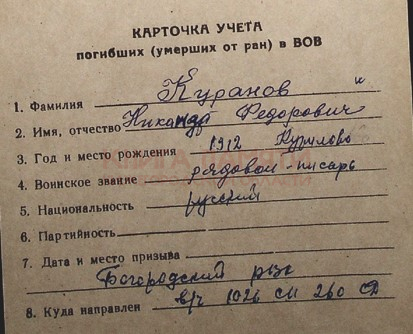 КАРТОЧКА УЧЕТА
погибших (умерших от ран) в ВОВ
1. Фамилия Куранов
2. Имя, отчество Никандр Федорович
3. Год и место рождения 1912 Курилово
4. Воинское звание рядовой-писарь
5. Национальность русский
6. Партийность
7. Дата и место призыва
Богородский рвк
8. Куда направлен в/ч 1026 сп 260 СД